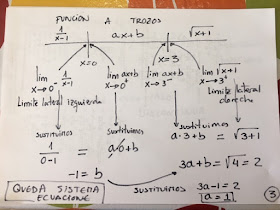 FUNCIÓN A TROZOS
1/x-1 ax+b √x+1
x=0 x=3
lim x→0⁻ 1/x-1 lim x→0⁺ ax+b lim x→3⁻ ax+b lim x→3⁺ √x+1
Limite lateral izquierda Limite lateral derecha
sustituimos sustituimos sustituimos
1/0-1 = a·0+b a·3+b = √3+1
-1=b 3a+b=√4=2
QUEDA SISTEMA ECUACIONE sustituimos 3a-1=2
a=1
3